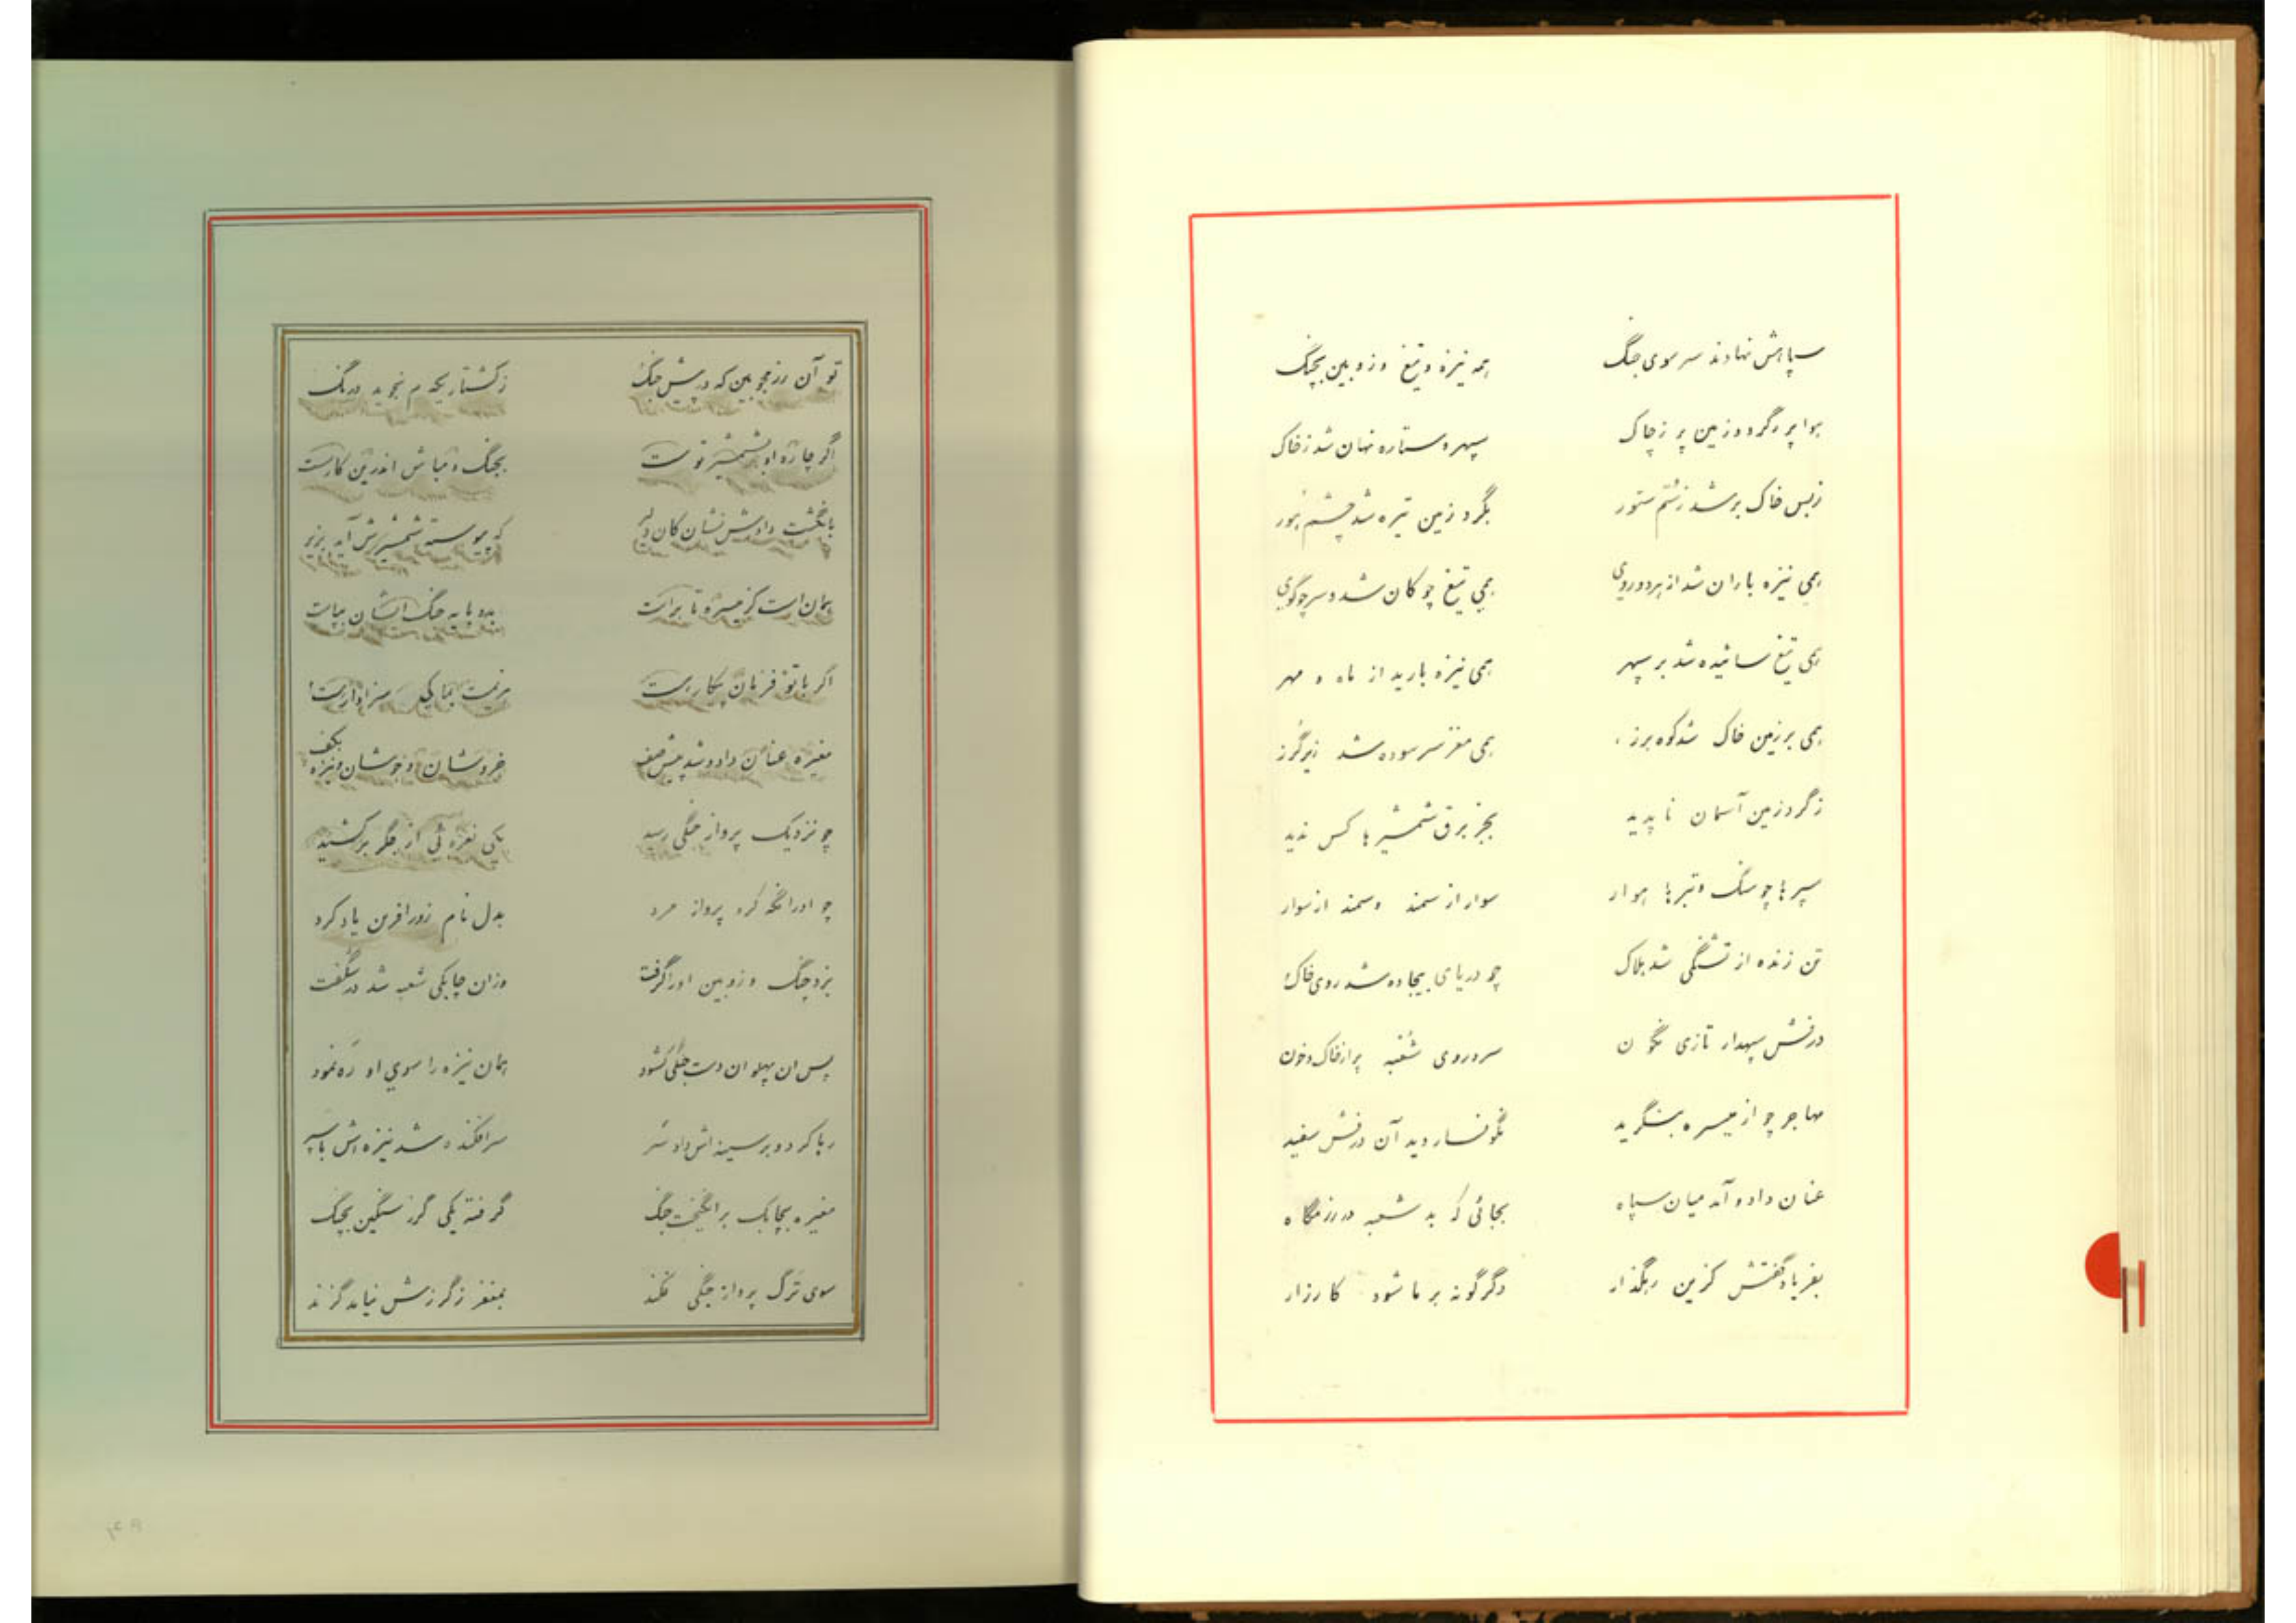 سپاهش نهادند سر سوی جنگ همه نیزه و تیغ و زوبین بچنگ
هوا پر ز گرد و زمین پر ز چاک سپهر و ستاره نهان شد ز خاک
ز بس خاک بر شد ز سم ستور بگرد زمین تیره شد چشم هور
همی نیزه باران شد از هر دو روی همی تیغ چوکان شد و سر چو گوی
همی تیغ سائیده شد بر سپهر همی نیزه بارید از ماه و مهر
همی بر زمین خاک شد کوه برز همی مغز سر سوده شد زیر گرز
ز گرد زمین آسمان ناپدید بجز برق شمشیرها کس ندید
سپرها چو سنگ و تبرها هوار سوار از سمند و سمند از سوار
تن زنده از تشنگی شد هلاک چو دریای بیجاده شد روی خاک
درفش سپهدار تازی نگون سر و روی شعبه پر از خاک و خون
مهاجر چو از میسره بنگرید نگونسار دید آن درفش سفید
عنان داد و آمد میان سپاه بجائی که بد شعبه در رزمگاه
بفریاد گفتش کزین رهگذار دگرگونه بر ما شود کارزار
تو آن رزمجو بین که در پیش جنگ ز کشتار یکدم نجوید درنگ
اگر چاره او بشمشیر توست بجنگ و مباش اندرین کار سست
بانگشت دادش نشان کان دلیر که پیوسته شمشیرش آید بزیر
همان است کز میسره تا براست بدو پایه جنگ ایشان بپاست
اگر با تو فرمان پیکار هست
مغیره عنان داد و شد پیش صف خروشان و جوشان و نیزه بکف
چو نزدیک پرواز جنگی رسید یکی نعره ئی از جگر برکشید
چو او را نگه کرد پرواز مرد بدل نام زورآفرین یاد کرد
بزد چنگ و زوبین او را گرفت وزان چابکی شعبه شد در شگفت
پس آن پهلوان دست جنگی گشود همان نیزه را سوی او ره نمود
رها کرد و بر سینه اش داد سر سرافکنده شد نیزه اش با سپر
مغیره بچابک برانگیخت جنگ گرفته یکی گرز سنگین بچنگ
سوی ترک پرواز جنگی فکند بمغفر ز گرزش نیامد گزند